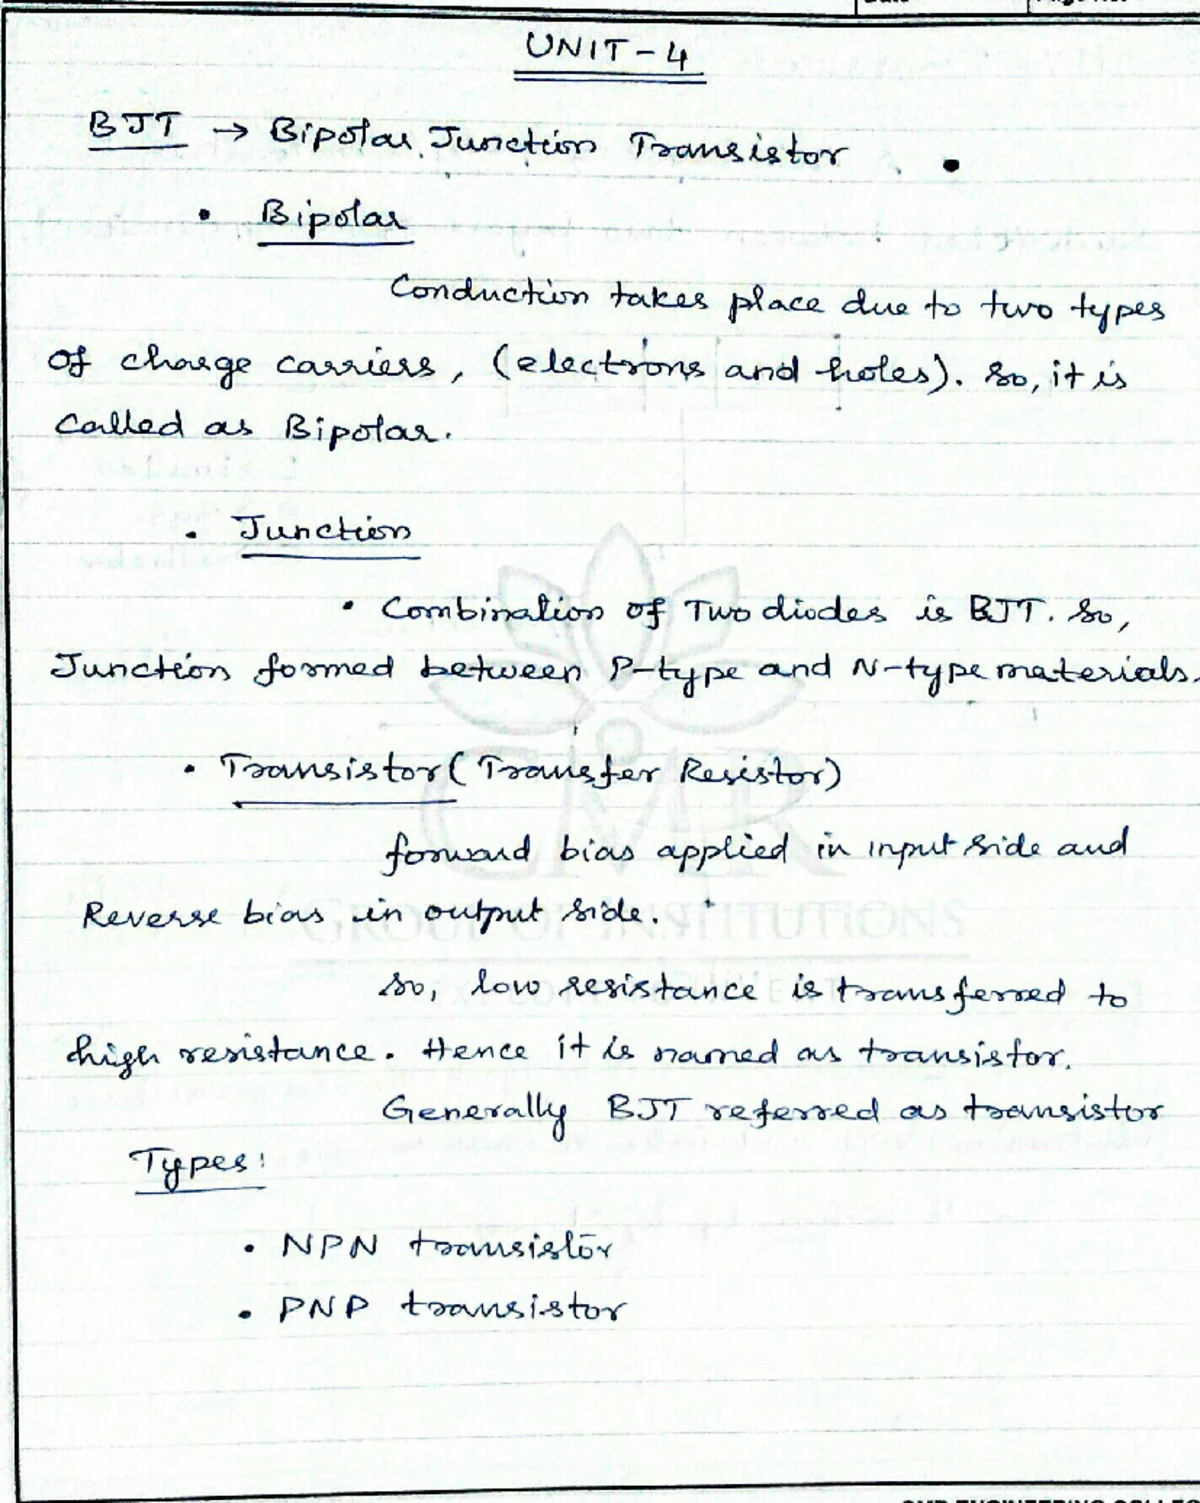 UNIT-4
BJT → Bipolar Junction Transistor
• Bipolar
Conduction takes place due to two types
of charge carriers, (electrons and holes). So, it is
called as Bipolar.
• Junction
• Combination of Two diodes is BJT. So,
Junction formed between P-type and N-type materials.
• Transistor (Transfer Resistor)
forward bias applied in input side and
Reverse bias in output side.
So, low resistance is transferred to
high resistance. Hence it is named as transistor.
Generally BJT referred as transistor
Types:
• NPN transistor
• PNP transistor
CMR
GROUP OF INSTITUTIONS